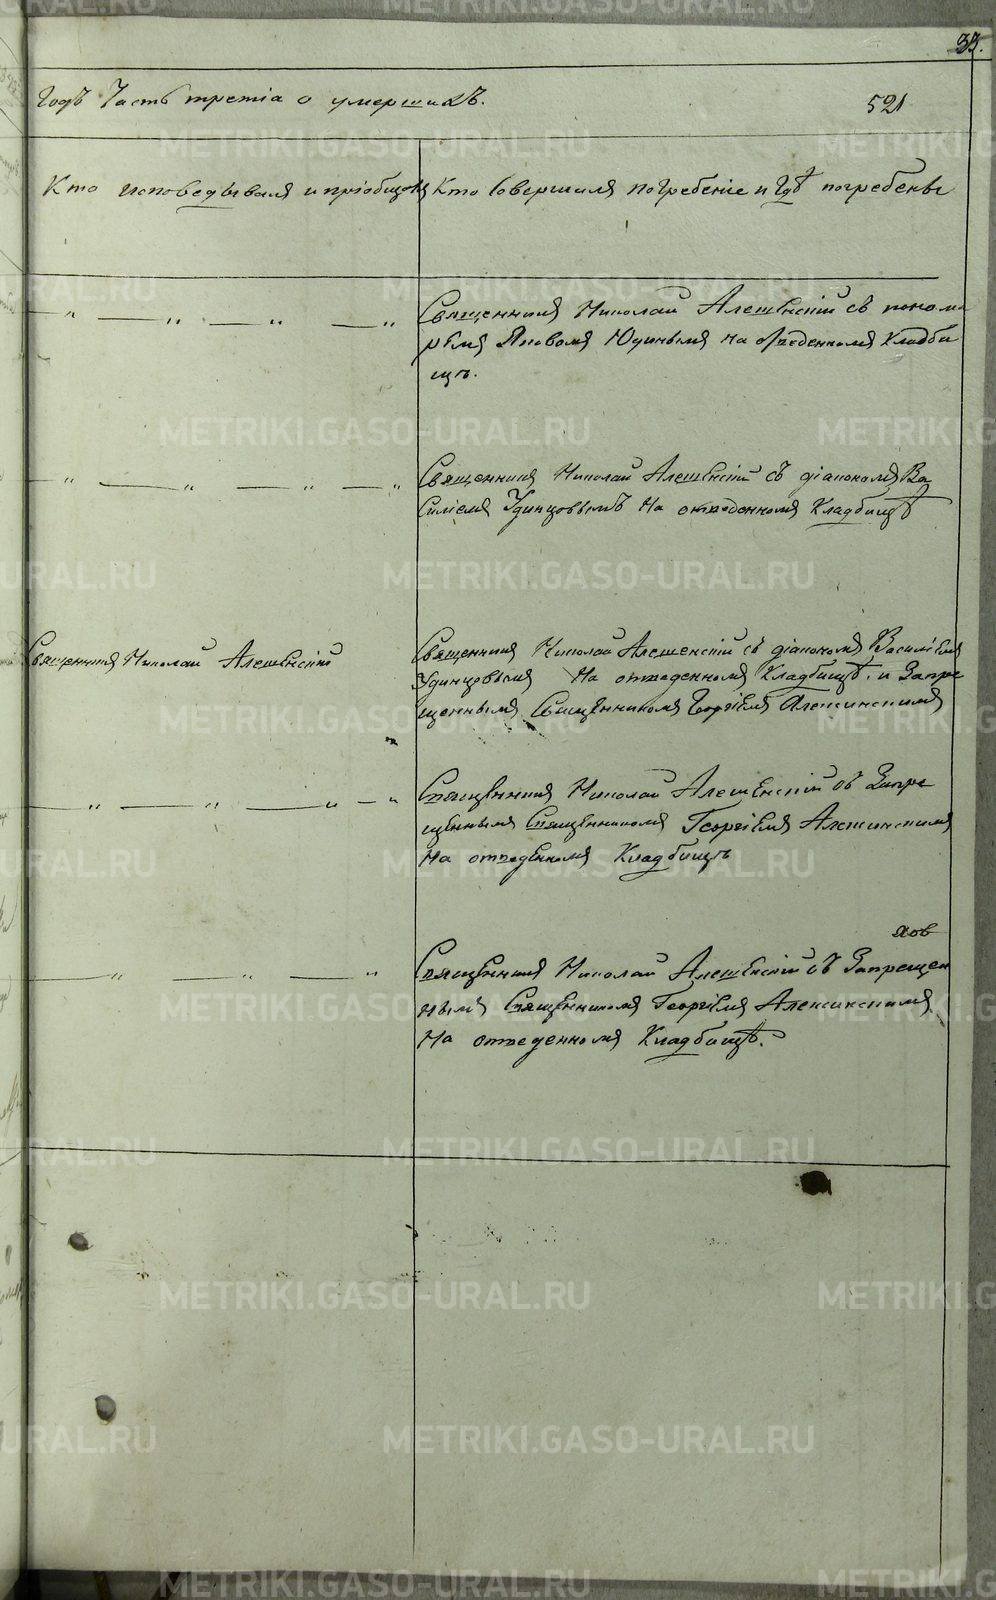 33.
Годъ Часть третіа о умершихъ. 521
Кто исповедывалъ и приобщалъ
Кто совершилъ погребеніе и гдѣ погребены
Священникъ Николай Алешенскій съ понома
ремъ Яковомъ Юдинымъ на отведенномъ Кладби
щѣ.
Священникъ Николай Алешенскій съ діакономъ Ва
силіемъ Удинцовымъ На отведенномъ Кладбищѣ
Священникъ Николай Алешенскій
Священникъ Николай Алешенскій съ діакономъ Василіемъ
Удинцовымъ На отведенномъ Кладбищѣ. и Запре
щеннымъ Священникомъ Георгіемъ Алешинскимъ
Священникъ Николай Алешенскій съ Запре
щеннымъ Священникомъ Георгіемъ Алешинскимъ
На отведенномъ Кладбищѣ
Священникъ Николай Алешенскій съ Запрещен
нымъ Священникомъ Георгіемъ Алешинскимъ
На отведенномъ Кладбищѣ.
METRIKI.GASO-URAL.RU